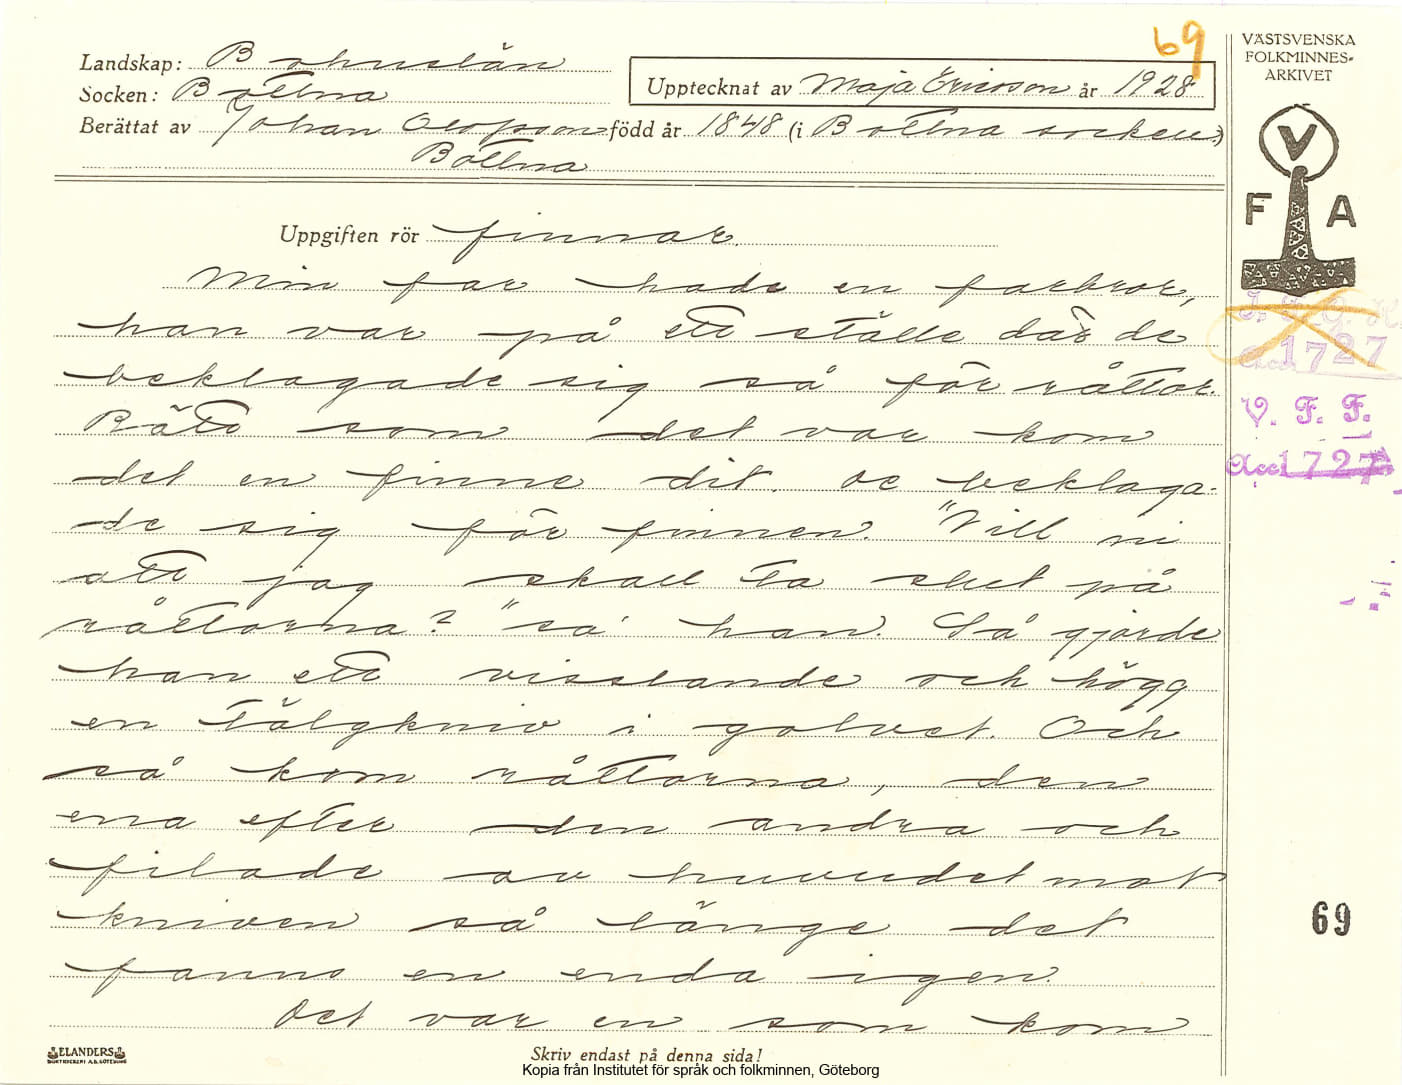 69
Landskap: Bohuslän
Socken: Bottna
Upptecknat av Maja Ericson år 1928
Berättat av Johan Olofsson född år 1848 (i Bottna socken)
Bottna
VÄSTSVENSKA
FOLKMINNES-
ARKIVET
V
F A
Uppgiften rör finnar.
Min far hade en farbror,
han var på ett ställe där de
beklagade sig så för råttor.
Rätt som det var kom
det en finne dit. De beklaga-
de sig för finnen. "Vill ni
att jag skall ta slut på
råttorna?" sa' han. Så gjorde
han ett visslande och högg
en tälgkniv i golvet. Och
så kom råttorna, den
ena efter den andra och
filade av huvudet mot
kniven så länge det
fanns en enda igen.
Det var en som kom
1727
V. F. F.
Acc 1727
69
ELANDERS
BOKTRYCKERI A.B. GÖTEBORG
Skriv endast på denna sida!
Kopia från Institutet för språk och folkminnen, Göteborg